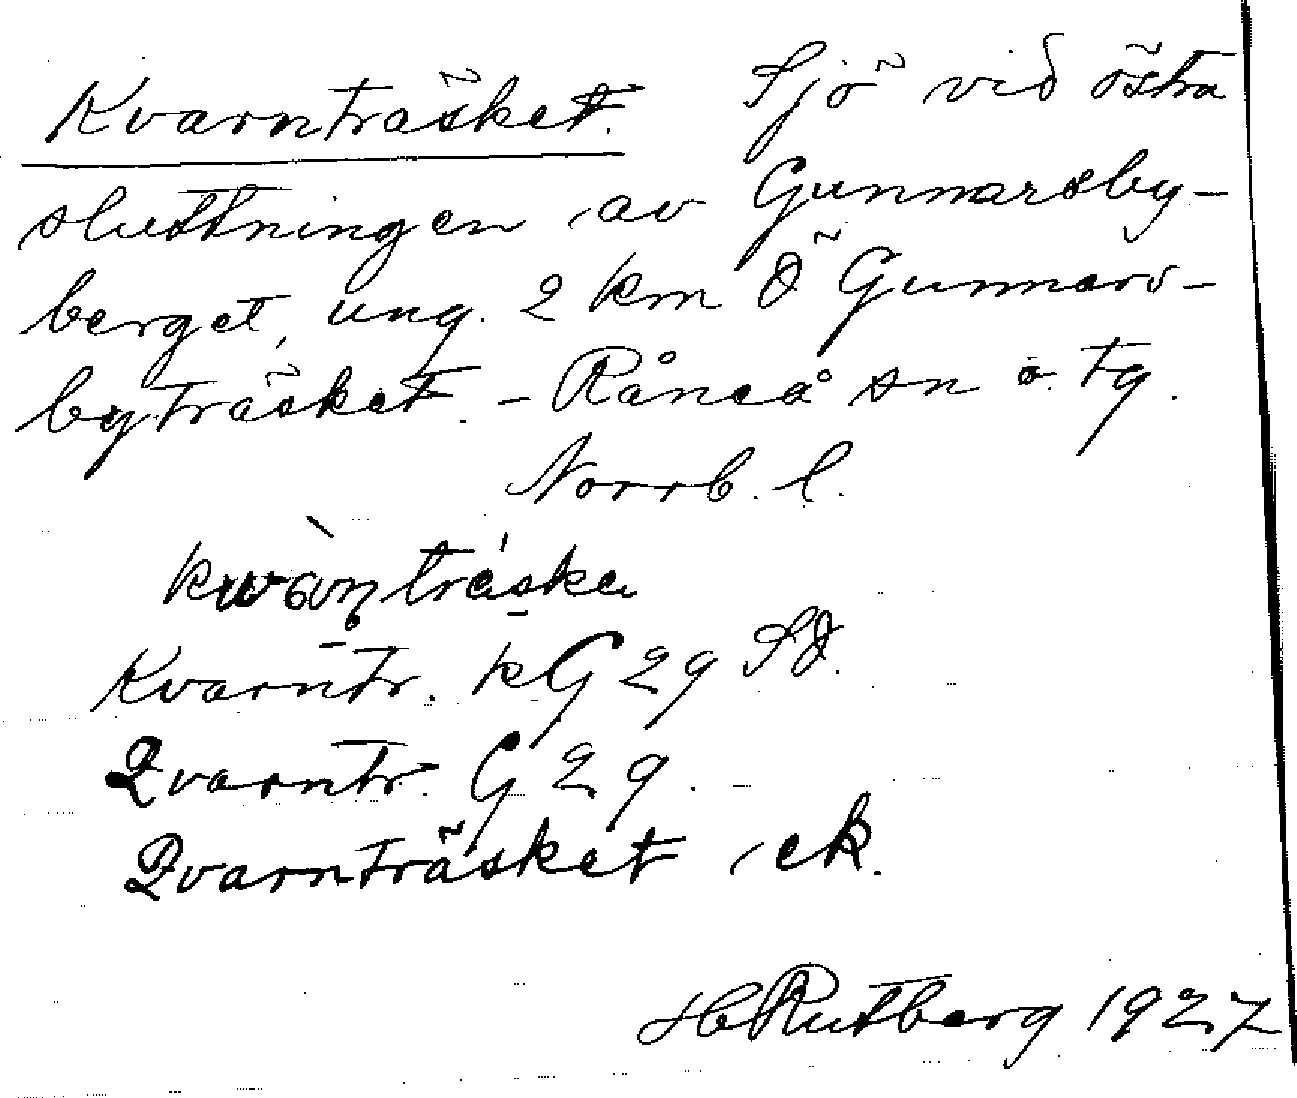 Kvarnträsket. Sjö vid östra
sluttningen av Gunnarsby-
berget, ung. 2 km Ö Gunnars-
byträsket. - Råneå sn o. tg.
Norrb. l.
Kvarntr. kG 29 SÖ.
Qvarntr. G 29.
Qvarnträsket, ek.
H Rutberg 1927